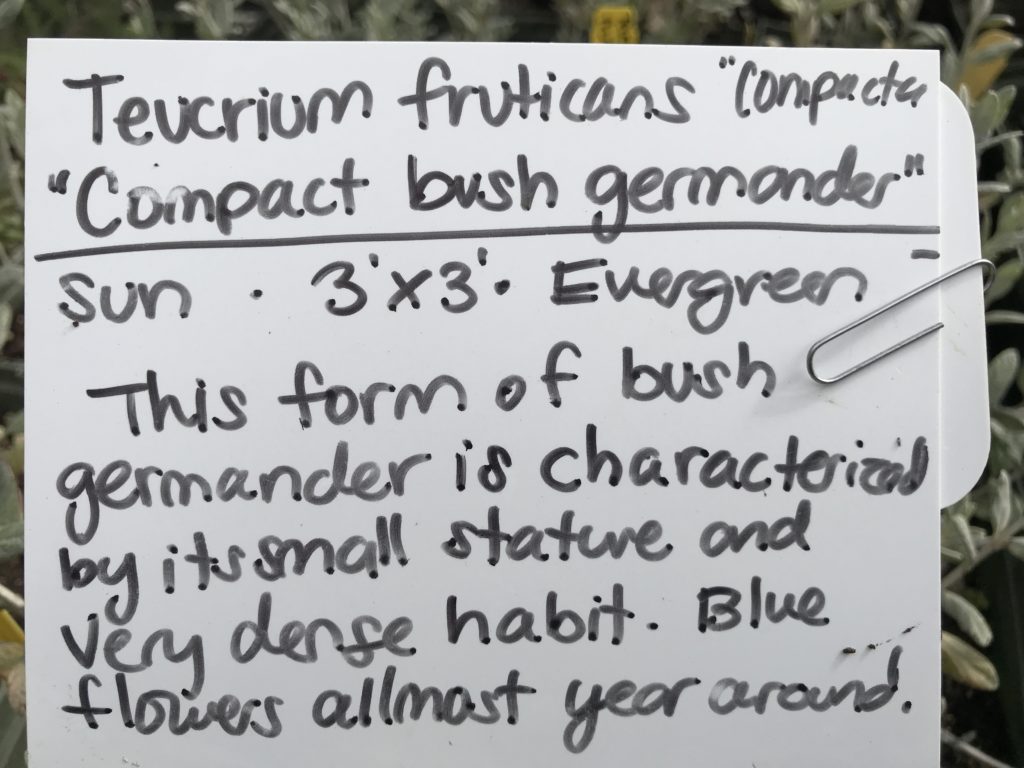 Teucrium fruticans "Compacta
"Compact bush germander"
sun · 3'x3'· Evergreen
This form of bush
germander is characterized
by its small stature and
very dense habit. Blue
flowers allmost year around.